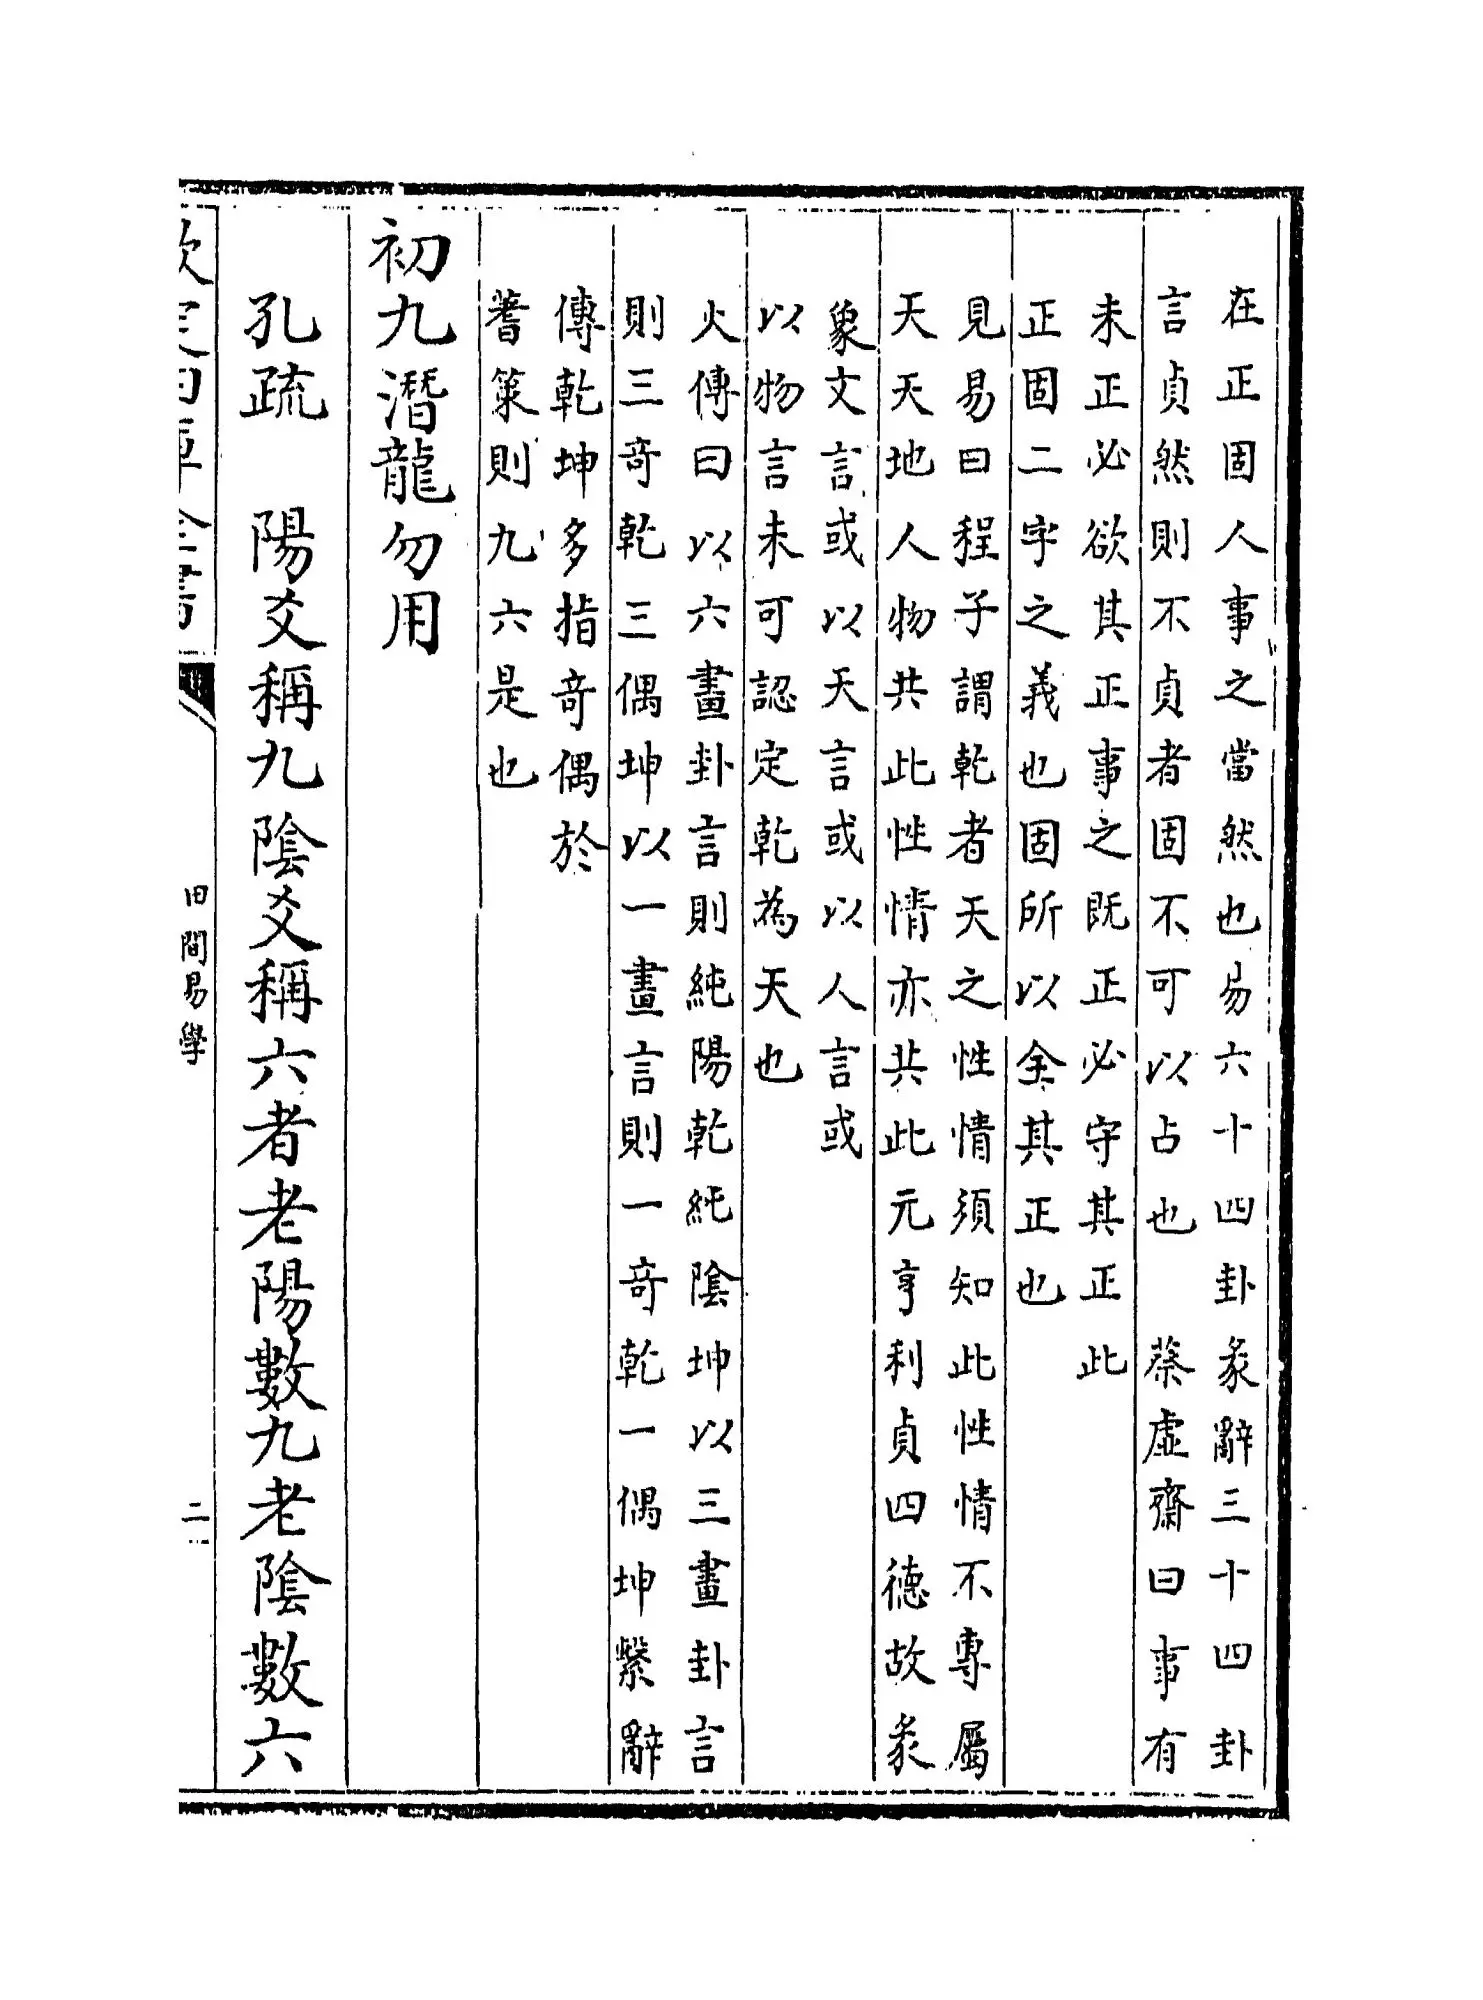 在正固人事之當然也易六十四卦彖辭三十四卦
言貞然則不貞者固不可以占也　蔡虛齋曰事有
未正必欲其正事之既正必守其正此
正固二字之義也固所以全其正也
見易曰程子謂乾者天之性情須知此性情不專屬
天天地人物共此性情亦共此元亨利貞四德故彖
象文言或以天言或以人言或
以物言未可認定乾為天也
火傳曰以六畫卦言則純陽乾純陰坤以三畫卦言
則三奇乾三偶坤以一畫言則一奇乾一偶坤繫辭
傳乾坤多指奇偶於
蓍策則九六是也
初九潛龍勿用
孔疏　陽爻稱九陰爻稱六者老陽數九老陰數六
欽定四庫全書
田間易學
二